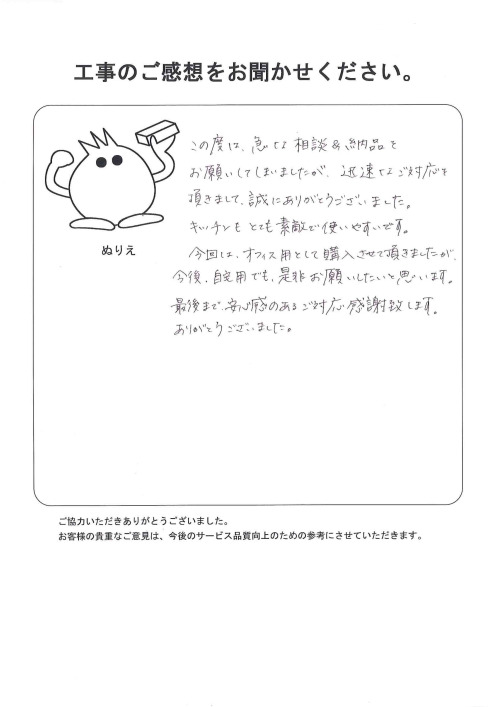 工事のご感想をお聞かせください。
この度は、急な相談&納品を
お願いしてしまいましたが、迅速なご対応を
頂きまして、誠にありがとうございました。
キッチンもとても素敵で使いやすいです。
ぬりえ
今回は、オフィス用として購入させて頂きましたが、
今後、自宅用でも、是非お願いしたいと思います。
最後まで、安心感のあるご対応感謝致します。
ありがとうございました。
ご協力いただきありがとうございました。
お客様の貴重なご意見は、今後のサービス品質向上のための参考にさせていただきます。